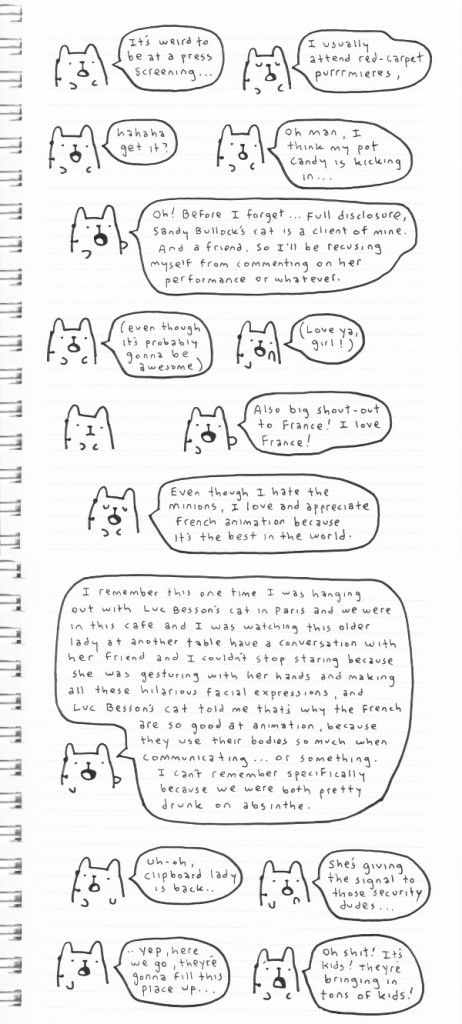 It's weird to
be at a press
screening...
I usually
attend red-carpet
purrrmieres,
hahaha
get it?
Oh man, I
think my pot
candy is kicking
in...
Oh! Before I forget... Full disclosure,
Sandy Bullock's cat is a client of mine.
And a friend. So I'll be recusing
myself from commenting on her
performance or whatever.
(even though
it's probably
gonna be
awesome)
(Love ya,
girl!)
Also big shout-out
to France! I love
France!
Even though I hate the
minions, I love and appreciate
French animation because
it's the best in the world.
I remember this one time I was hanging
out with Luc Besson's cat in Paris and we were
in this cafe and I was watching this older
lady at another table have a conversation with
her friend and I couldn't stop staring because
she was gesturing with her hands and making
all these hilarious facial expressions, and
Luc Besson's cat told me that's why the French
are so good at animation, because
they use their bodies so much when
communicating... or something.
I can't remember specifically
because we were both pretty
drunk on absinthe.
Uh-oh,
clipboard lady
is back..
She's giving
the signal to
those security
dudes...
.. yep, here
we go, they're
gonna fill this
place up...
Oh shit! It's
kids! they're
bringing in
tons of kids!